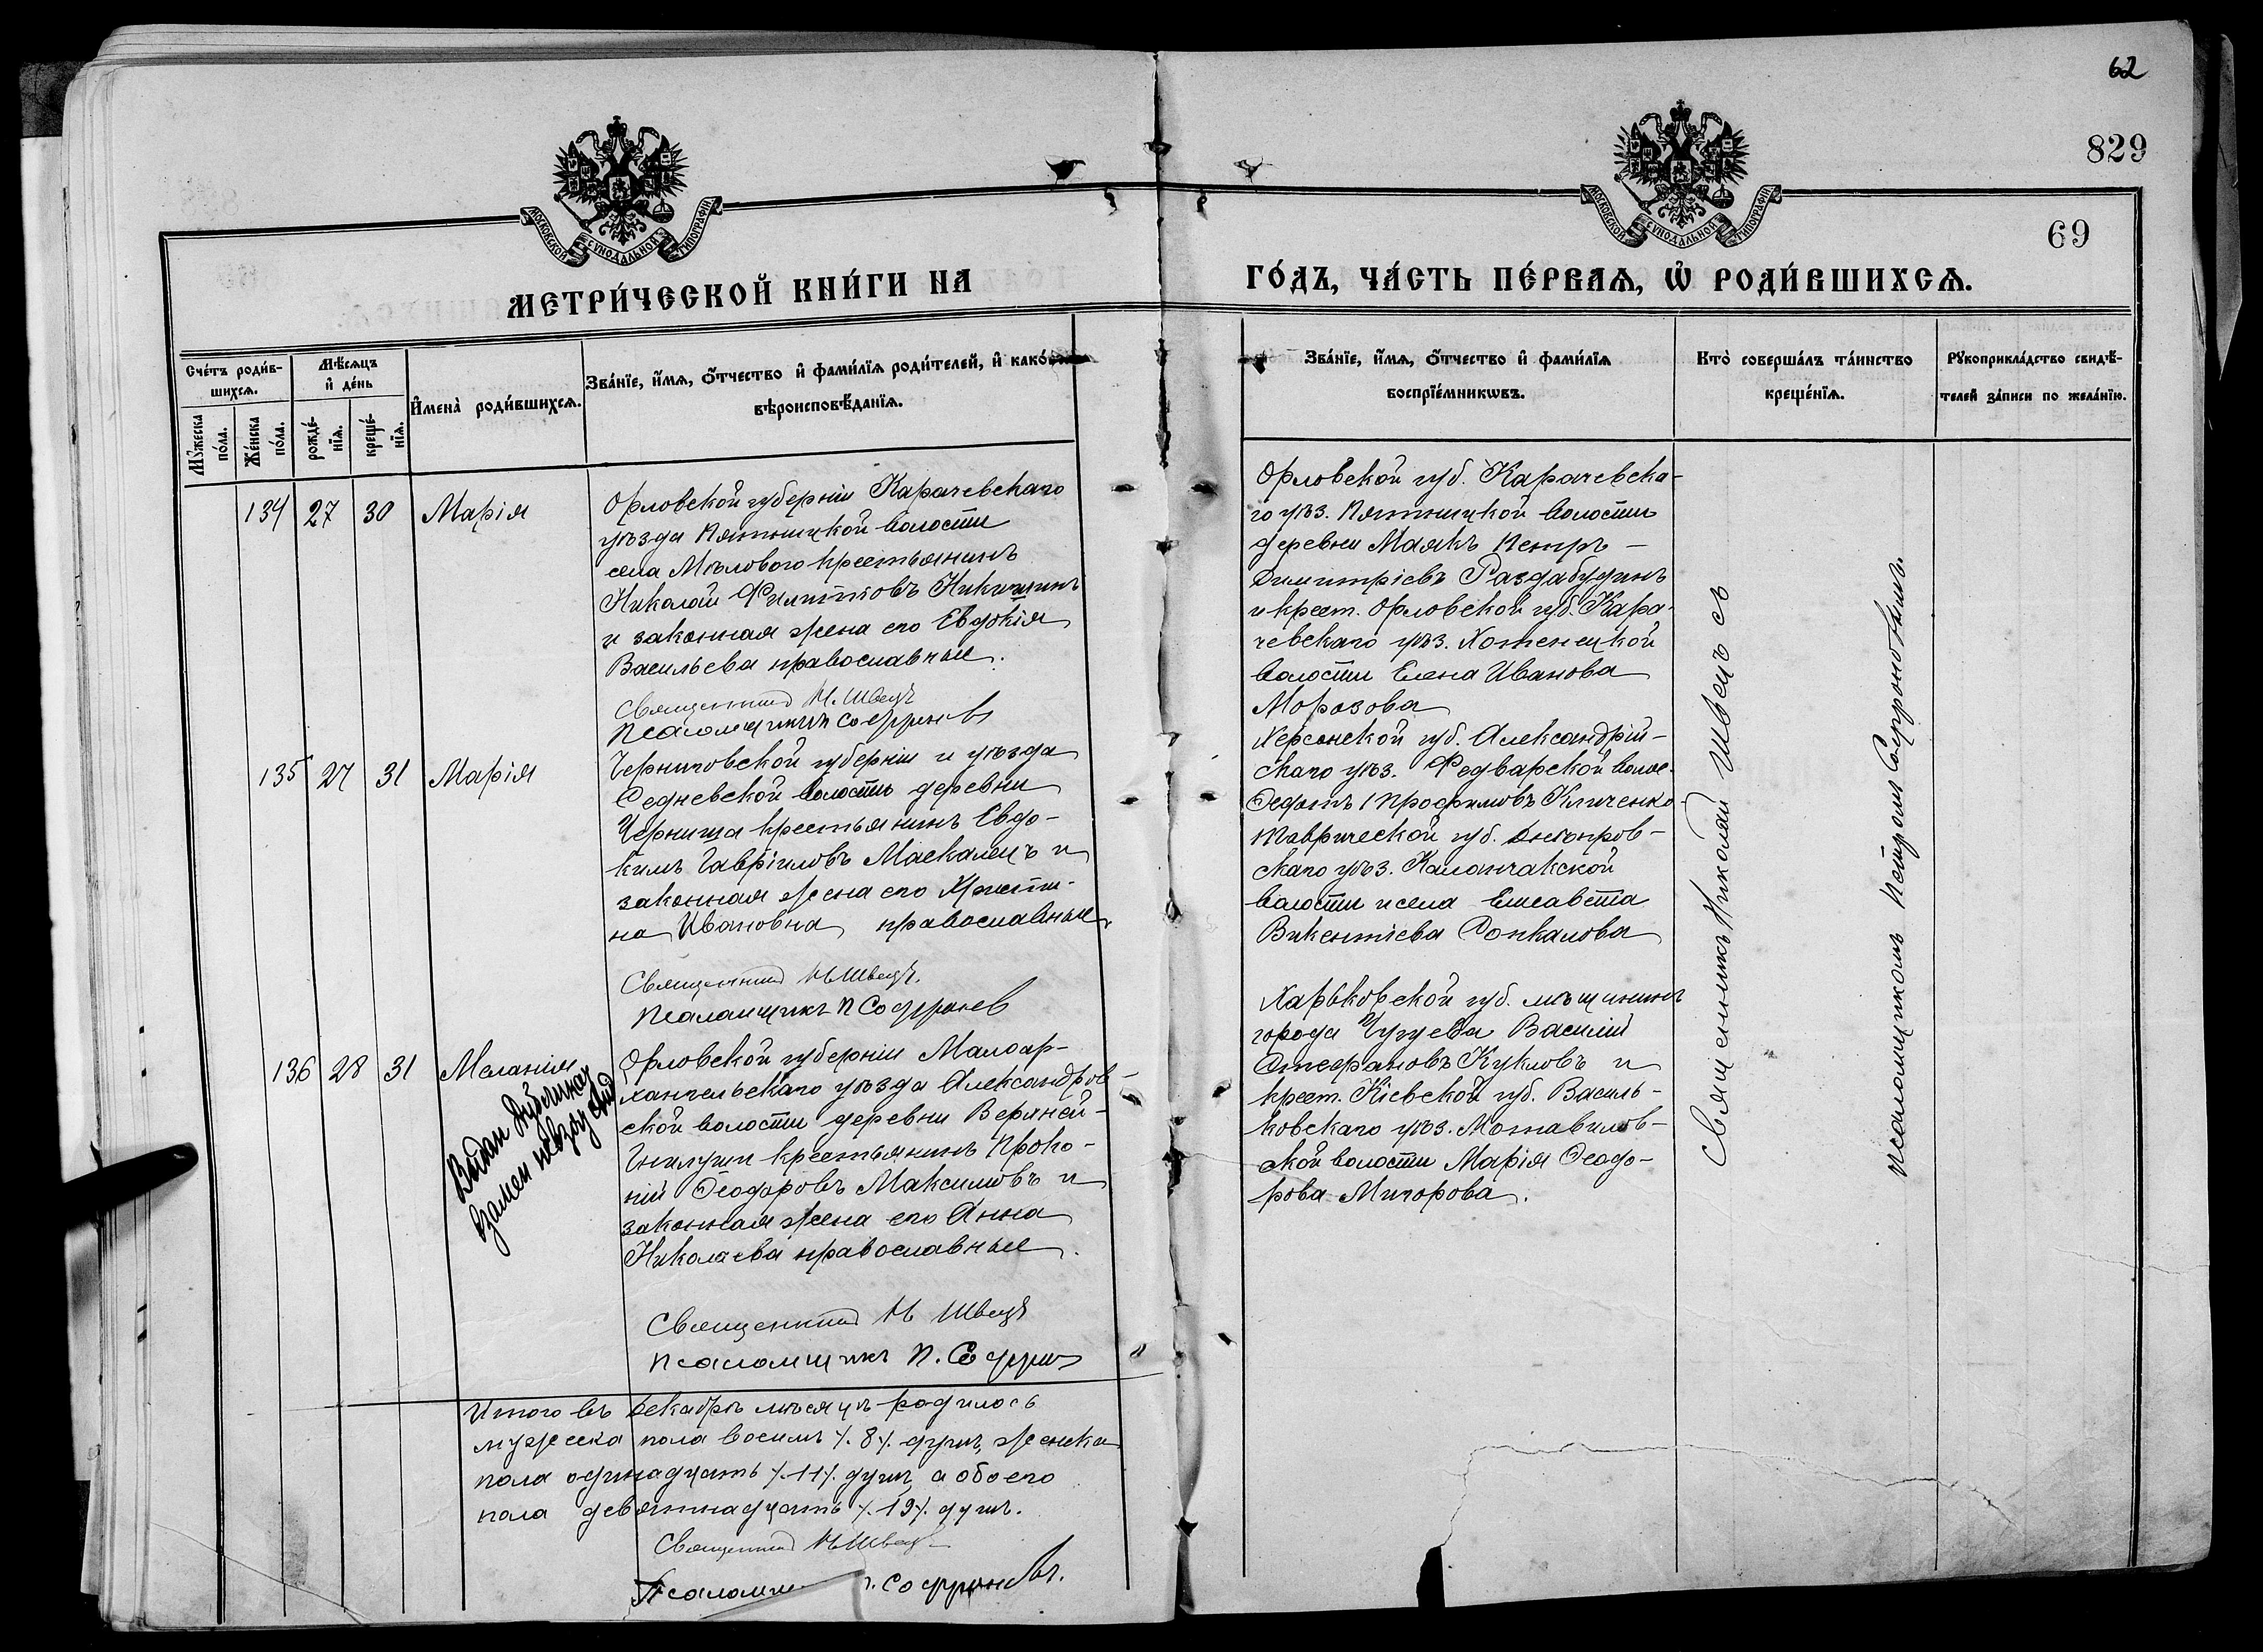 62
829
69
МОСКОВСКОЙ СѴНОДАЛЬНОЙ ТИПОГРАФІИ
МОСКОВСКОЙ СѴНОДАЛЬНОЙ ТИПОГРАФІИ
МЕТРИ́ЧЕСКОЙ КНИ́ГИ НА
ГО́ДЪ, ЧА́СТЬ ПЕ́РВАѦ, Ѡ҆ РОДИ́ВШИХСѦ.
Сче́тъ роди́в-
шихсѧ.
Мѣ́сѧцъ
и҆ де́нь
Мꙋ́жеска
по́ла.
Же́нска
по́ла.
рожде́-
нїѧ.
креще́-
нїѧ.
И҆мена̀ роди́вшихсѧ.
Зва́нїе, и҆́мѧ, ѻ҆́тчество и҆ фами́лїѧ роди́телей, и҆ како́гѡ
вѣроисповѣ́данїѧ.
Зва́нїе, и҆́мѧ, ѻ҆́тчество и҆ фами́лїѧ
воспрїе́мникѡвъ.
Кто̀ соверша́лъ та́инство
креще́нїѧ.
Рꙋкоприкла́дство свидѣ́-
телей за́писи по жела́нїю.
134 27 30 Марія
Орловской губерніи Карачевскаго
уѣзда Пятницкой волости
села Мѣлового крестьянинъ
Николай Филипповъ Никишинъ
и законная жена его Евдокія
Васильева православные.
Священникъ Н. Швецъ
Псаломщикъ П Софронов
Орловской губ. Карачевска-
го уѣз. Пятницкой волости
деревни Маякъ Петръ —
Димитріевъ Раздабудинъ
и крест. Орловской губ. Кара-
чевскаго уѣз. Хотенецкой
волости Елена Иванова
Морозова
135 27 31 Марія
Черниговской губерніи и уѣзда
Седневской волости деревни
Черниша крестьянинъ Евдо-
кимъ Гавріиловъ Маскалецъ и
законная жена его Христи-
на Ивановна православные
Священникъ Н Швецъ.
Псаломщикъ П Софронов
Херсонской губ. Александрій-
скаго уѣз. Федварской волос.
Ѳедотъ Трофимовъ Кличенко-
Таврической губ. Днѣпров-
скаго уѣз. Каланчакской
волости и села Елисавета
Викентіева Сопкалова
136 28 31 Меланія
Выдан дубликат
взамен
Орловской губерніи Малоар-
хангельскаго уѣзда Александров-
ской волости деревни Верхней-
Гнилуши крестьянинъ Проко-
пій Ѳеодоровъ Максимовъ и
законная жена его Анна
Николаева православные.
Священникъ Н Швецъ
Псаломщикъ П. Софрон
Харьковской губ. мѣщанинъ
города Чугуева Василій
Стефановъ Кукловъ и
крест. Кіевской губ. Василь-
ковскаго уѣз. Мотавилов-
ской волости Марія Ѳеодо-
рова Мигорова.
Священникъ Николай Швецъ съ
псаломщикомъ Петромъ Софроновымъ.
Итого въ декабрѣ мѣсяцѣ родилось
мужеска пола восемь /. 8 /. душъ, женска
пола одинадцать /. 11 /. душъ, а обоего
пола девятнадцать /. 19 /. душъ.
Священникъ Н Швецъ
Псаломщ П. Софроновъ.